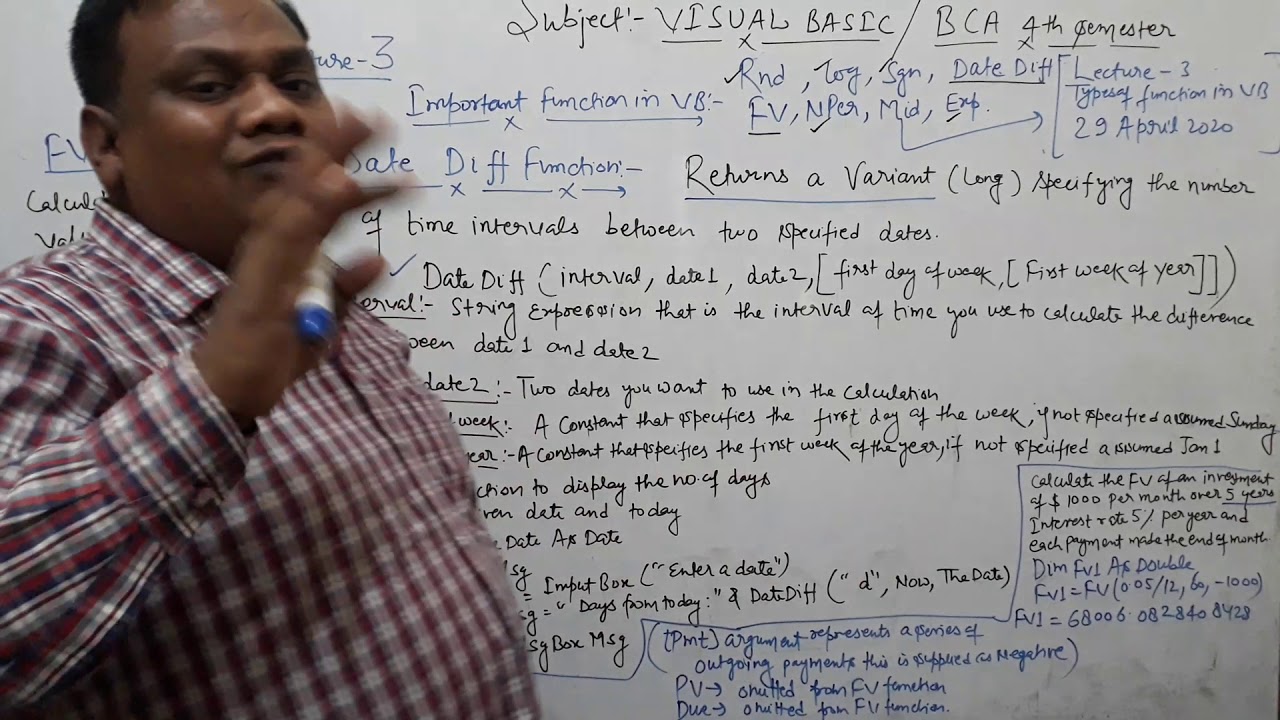 Subject:- VISUAL BASIC / BCA 4th Semester
ure-3
Important function in VB:-
Rnd, Log, Sgn, Date Diff
FV, NPer, Mid, Exp.
Lecture-3
Types of function in VB
29 April 2020
FV
Calcul
Valu
Date Diff Function:- Returns a Variant (Long) specifying the number
of time intervals between two specified dates.
Date Diff (interval, date1, date2, [first day of week, [First week of year]])
erval:- String Expression that is the interval of time you use to calculate the difference
ween date1 and date2
date2:- Two dates you want to use in the calculation
week:- A Constant that specifies the first day of the week, if not specified assumed Sunday
year:- A Constant that specifies the first week of the year, if not specified assumed Jan 1
ction to display the no. of days
ven date and today
Date As Date
Msg
= InputBox ("Enter a date")
sg = "Days from today:" & DateDiff ("d", Now, TheDate)
sgBox Msg
Calculate the FV of an investment
of $ 1000 per month over 5 years
Interest rate 5% per year and
each payment made the end of month.
Dim FV1 As Double
FV1 = FV (0.05/12, 60, -1000)
FV1 = 68006.0828408428
(Pmt) argument represents a series of
outgoing payments this is supplied as Negative)
PV→ omitted from FV function
Due→ omitted from FV function.